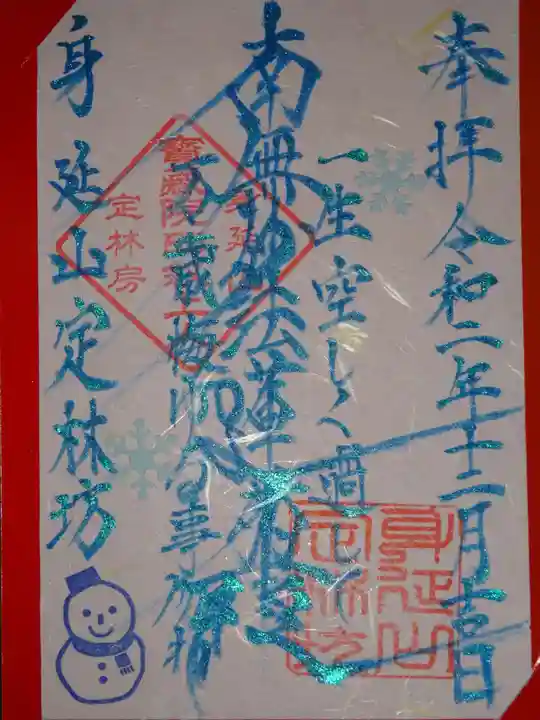 奉拝 令和二年十二月吉日
一生空しく過して
南無妙法蓮華経
万歳悔ゆる事勿れ
身延山定林坊
身延山
定林坊
身延山
定林房